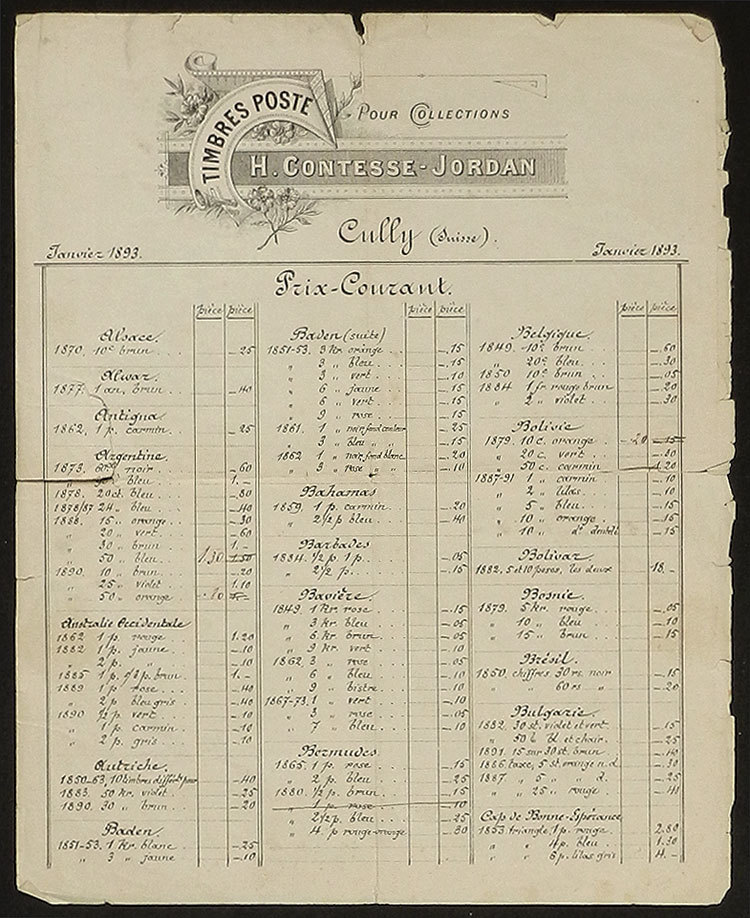 TIMBRES POSTE
POUR COLLECTIONS
H. CONTESSE-JORDAN
Cully (Suisse).
Janvier 1893. Janvier 1893.
Prix-Courant.
pièce pièce
Alsace.
1870. 10c brun . . . -25
Alwar.
1877. 1 an. brun . . . -40
Antigua
1862. 1 p. carmin . . . -25
Argentine
1873. noir . . -60
" bleu . . 1.-
1878. 20ct. bleu . . . -80
1878/87 24 " bleu . . . -40
1888. 15 " orange . . . -30
" 20 " vert . . . -60
" 30 " brun . . . 1.-
" 50 " bleu . . . 1.30 1.50
1890. 10 " brun . . . -20
" 25 " violet . . 1.10
" 50 " orange
Australie Occidentale
1862 1 p. rouge . . . 1.20
1882 1 p. jaune . . . -10
" 2 p. " . . . -10
1885 1 p. 1/2 p. brun . 1.-
1889 1 p. rose . . . -40
" 2 p. bleu gris . . -40
1890 1/2 p. vert . . . -10
" 1 p. carmin . . . -10
" 2 p. gris . . . -10
Autriche.
1850-63, 10 timbres différts pour -40
1883. 50 kr. violet . . -25
1890. 30 " brun . . -20
Baden
1851-53. 1 kr. blanc . . -25
" 3 " jaune . . -10
pièce pièce
Baden (suite)
1851-53. 3 kr. orange . . -15
" 3 " bleu . . . -15
" 3 " vert . . . -10
" 6 " jaune . . . -15
" 6 " vert . . . -15
" 9 " rose . . . -15
1861. 1 " noir, fond couleur -25
" 3 " bleu " " -15
1862 1 " noir, fond blanc -20
" 3 " rose " " -10
Bahamas
1859. 1 p. carmin . . . -20
" 2 1/2 p. bleu . . . -40
Barbades
1884. 1/2 p. 1 p. . . . -05
" 2 1/2 p. . . . -15
Bavière.
1849. 1 kr rose . . . -15
" 3 kr. bleu . . . -05
" 6 kr. brun . . . -05
" 9 kr. vert . . . -10
1862. 3 " rose . . . -05
" 6 " bleu . . . -10
" 9 " bistre . . . -10
1867-73. 1 " vert . . . -10
" 3 " rose . . . -05
" 7 " bleu . . . -10
Bermudes
1865. 1 p. rose . . . -15
" 2 p. bleu . . . -25
1880. 1/2 p. brun . . . -15
" 1 p. rose . . . -10
" 2 1/2 p. bleu . . . -25
" 4 p rouge-orange -30
pièce pièce
Belgique.
1849. 10c brun . . . -60
" 20c bleu . . . -30
1850 10c brun . . . -05
1884 1 fr rouge brun . -20
" 2 " violet . . -30
Bolivie
1879. 10 c. orange . . -20 -15
" 20 c. vert . . . -30
" 50 c. carmin . 1.20
1887-91 1 " carmin . . -10
" 2 " lilas . . . -10
" 5 " bleu . . . -15
" 10 " orange . . -15
" 10 " do dentelé -15
Bolivar.
1882, 5 et 10 pesos, les deux 18.-
Bosnie
1879. 5 kr. rouge . . -05
" 10 " bleu . . -10
" 15 " brun . . -15
Brésil.
1850. chiffres 30 rs. noir -15
" " 60 rs " -20
Bulgarie.
1882. 30 st. violet et vert . -15
" 50 " bl. et chair . . -25
1891. 15 sur 30 st. brun . . -40
1886 taxe, 5 st. orange n. d. -30
1887. " 5 " " d. -25
" " 25 " rouge . -40
Cap de Bonne-Espérance
1853 triangle, 1 p. rouge 2.80
" " 4 p. bleu . 1.30
" " 6 p. lilas gris 4.-